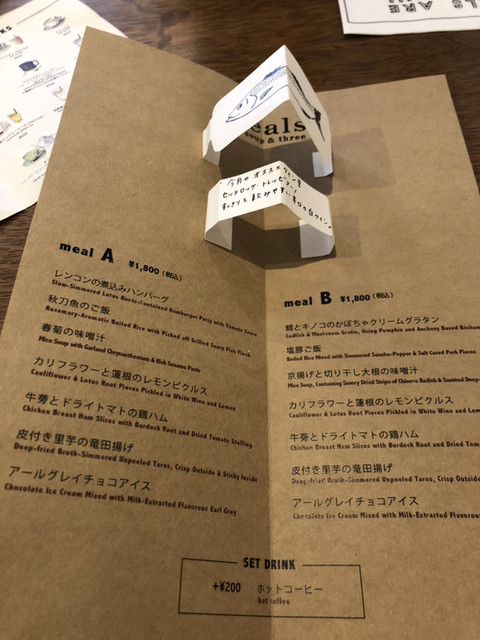 eals
soup & three
今月のオススメワインを
すっきりと飲みやすい辛口の白ワイン。
meal A ¥1,800 (税込)
レンコンの煮込みハンバーグ
Slow-Simmered Lotus Roots-Contained Hamburger Patty with Tomato Sauce
秋刀魚のご飯
Rosemary-Aromatic Boiled Rice with Picked off Grilled Saury Pike Flesh
春菊の味噌汁
Miso Soup with Garland Chrysanthemums & Rich Sesame Paste
カリフラワーと蓮根のレモンピクルス
Cauliflower & Lotus Root Pieces Pickled in White Wine and Lemon
牛蒡とドライトマトの鶏ハム
Chicken Breast Ham Slices with Burdock Root and Dried Tomato Stuffing
皮付き里芋の竜田揚げ
Deep-fried Broth-Simmered Unpeeled Taros, Crisp Outside & Sticky Inside
アールグレイチョコアイス
Chocolate Ice Cream Mixed with Milk-Extracted Flavorous Earl Grey
meal B ¥1,800 (税込)
鱈とキノコのかぼちゃクリームグラタン
Codfish & Mushroom Gratin, Using Pumpkin and Anchovy Based Bécham
塩豚ご飯
Boiled Rice Mixed with Simmered Sansho-Pepper & Salt Cured Pork Pieces
京揚げと切り干し大根の味噌汁
Miso Soup, Containing Savory Dried Strips of Chinese Radish & Sauteed Deep-
カリフラワーと蓮根のレモンピクルス
Cauliflower & Lotus Root Pieces Pickled in White Wine and Lemon
牛蒡とドライトマトの鶏ハム
Chicken Breast Ham Slices with Burdock Root and Dried Tom
皮付き里芋の竜田揚げ
Deep-fried Broth-Simmered Unpeeled Taros, Crisp Outside
アールグレイチョコアイス
Chocolate Ice Cream Mixed with Milk-Extracted Flavorous
SET DRINK
+¥200 ホットコーヒー
hot coffee